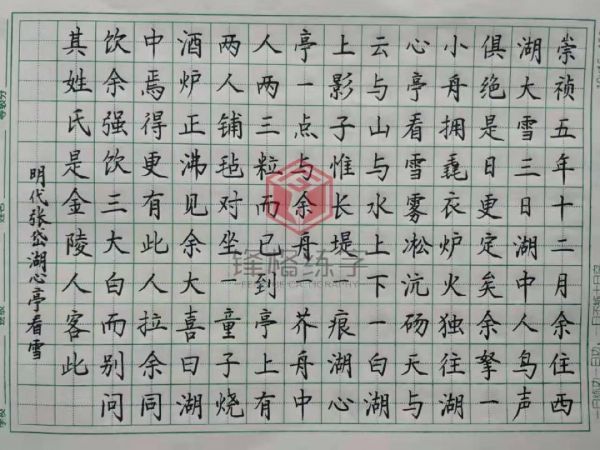 崇祯五年十二月余住西
湖大雪三日湖中人鸟声
俱绝是日更定矣余拏一
小舟拥毳衣炉火独往湖
心亭看雪雾凇沆砀天与
云与山与水上下一白湖
上影子惟长堤一痕湖心
亭一点与余舟一芥舟中
人两三粒而已到亭上有
两人铺毡对坐一童子烧
酒炉正沸见余大喜曰湖
中焉得更有此人拉余同
饮余强饮三大白而别问
其姓氏是金陵人客此
明代张岱湖心亭看雪
练字
CALLIGRAPHY